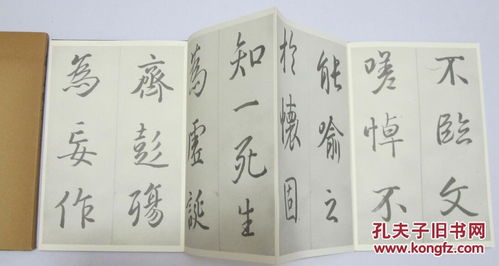 不臨文
嗟悼不
能喻之
於懷固
知一死生
為虛誕
齊彭殤
為妄作
孔夫子旧书网
www.kongfz.com